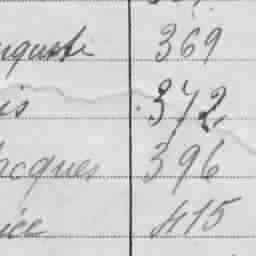 uguste 369
is 372
acques 396
ice 415